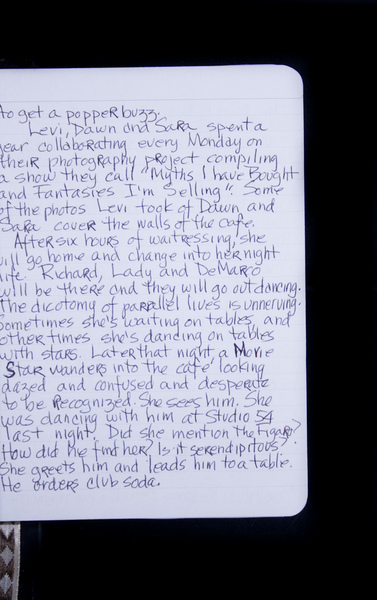 to get a popper buzz.
Levi, Dawn and Sara spent a
year collaborating every Monday on
their photography project compiling
a show they call "Myths I have Bought
and Fantasies I'm Selling". Some
of the photos Levi took of Dawn and
Sara cover the walls of the cafe.
After six hours of waitressing, she
will go home and change into her night
life. Richard, Lady and DeMarco
will be there and they will go out dancing.
The dicotomy of parallel lives is unnerving.
Sometimes she's waiting on tables, and
other times she's dancing on tables
with stars. Later that night, a Movie
Star wanders into the cafe looking
dazed and confused and desperate
to be recognized. She sees him. She
was dancing with him at Studio 54
last night. Did she mention the Figaro?
How did he find her? Is it serendipitous?
She greets him and leads him to a table.
He orders club soda.